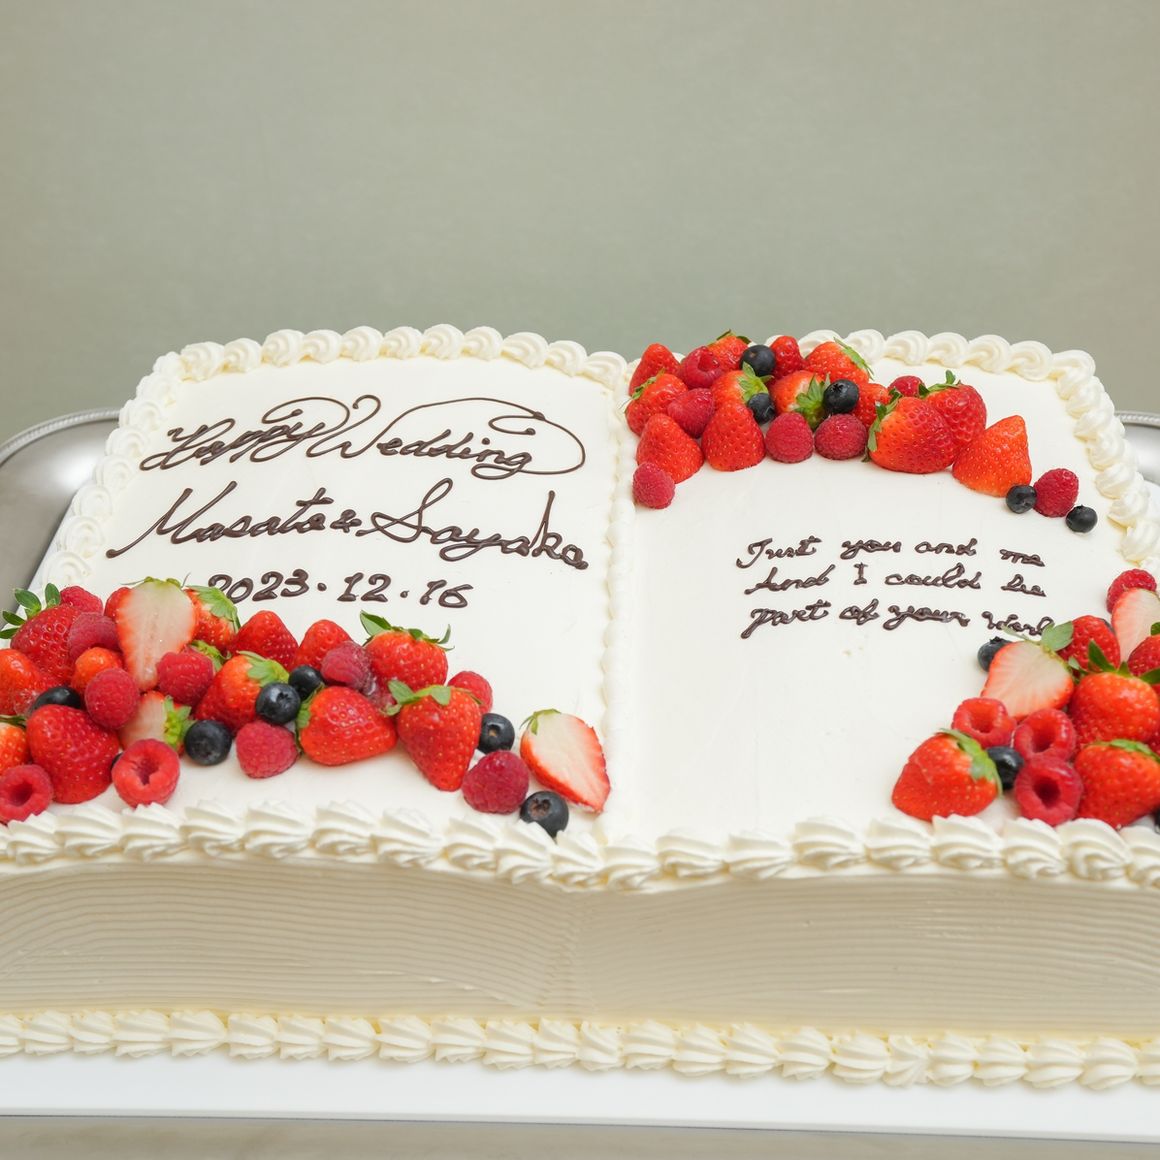 Happy Wedding
Masato & Sayaka
2023.12.16
Just you and me
And I could be
part of your